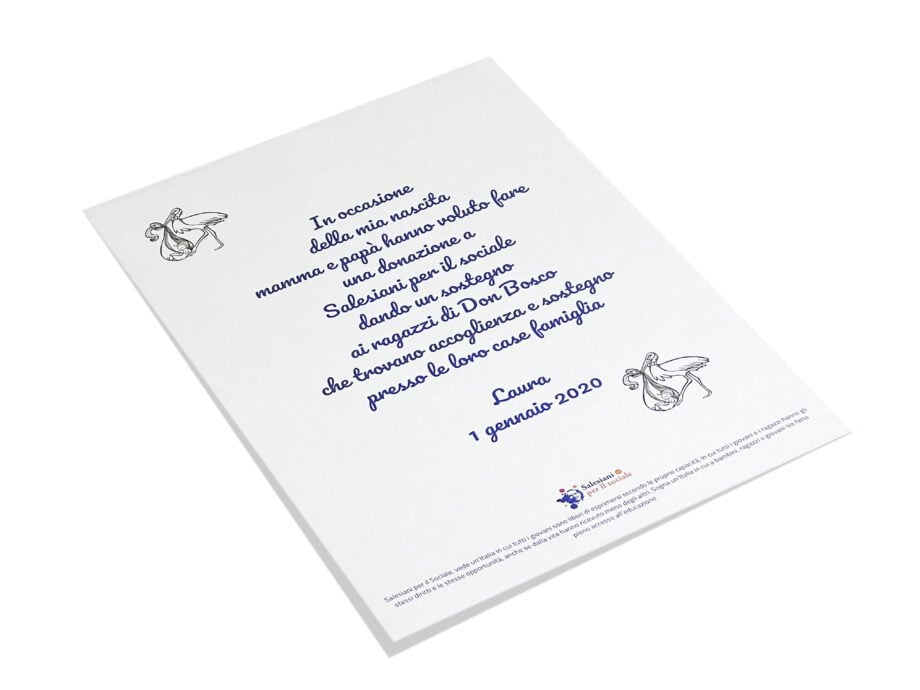 In occasione
della mia nascita
mamma e papà hanno voluto fare
una donazione a
Salesiani per il sociale
dando un sostegno
ai ragazzi di Don Bosco
che trovano accoglienza e sostegno
presso le loro case famiglia
Laura
1 gennaio 2020
Salesiani
per il sociale
Salesiani per il Sociale, vede un'Italia in cui tutti i giovani sono liberi di esprimersi secondo le proprie capacità, in cui tutti i giovani e i ragazzi hanno gli
stessi diritti e le stesse opportunità, anche se dalla vita hanno ricevuto meno degli altri. Sogna un'Italia in cui a bambini, ragazzi e giovani sia fatto
pieno accesso all'educazione